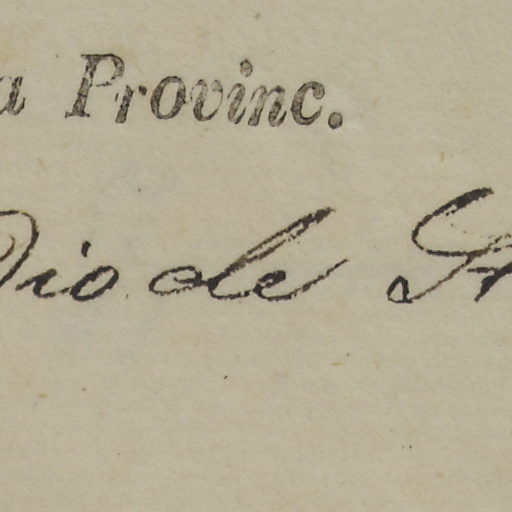 a Provinc.
Dio de S